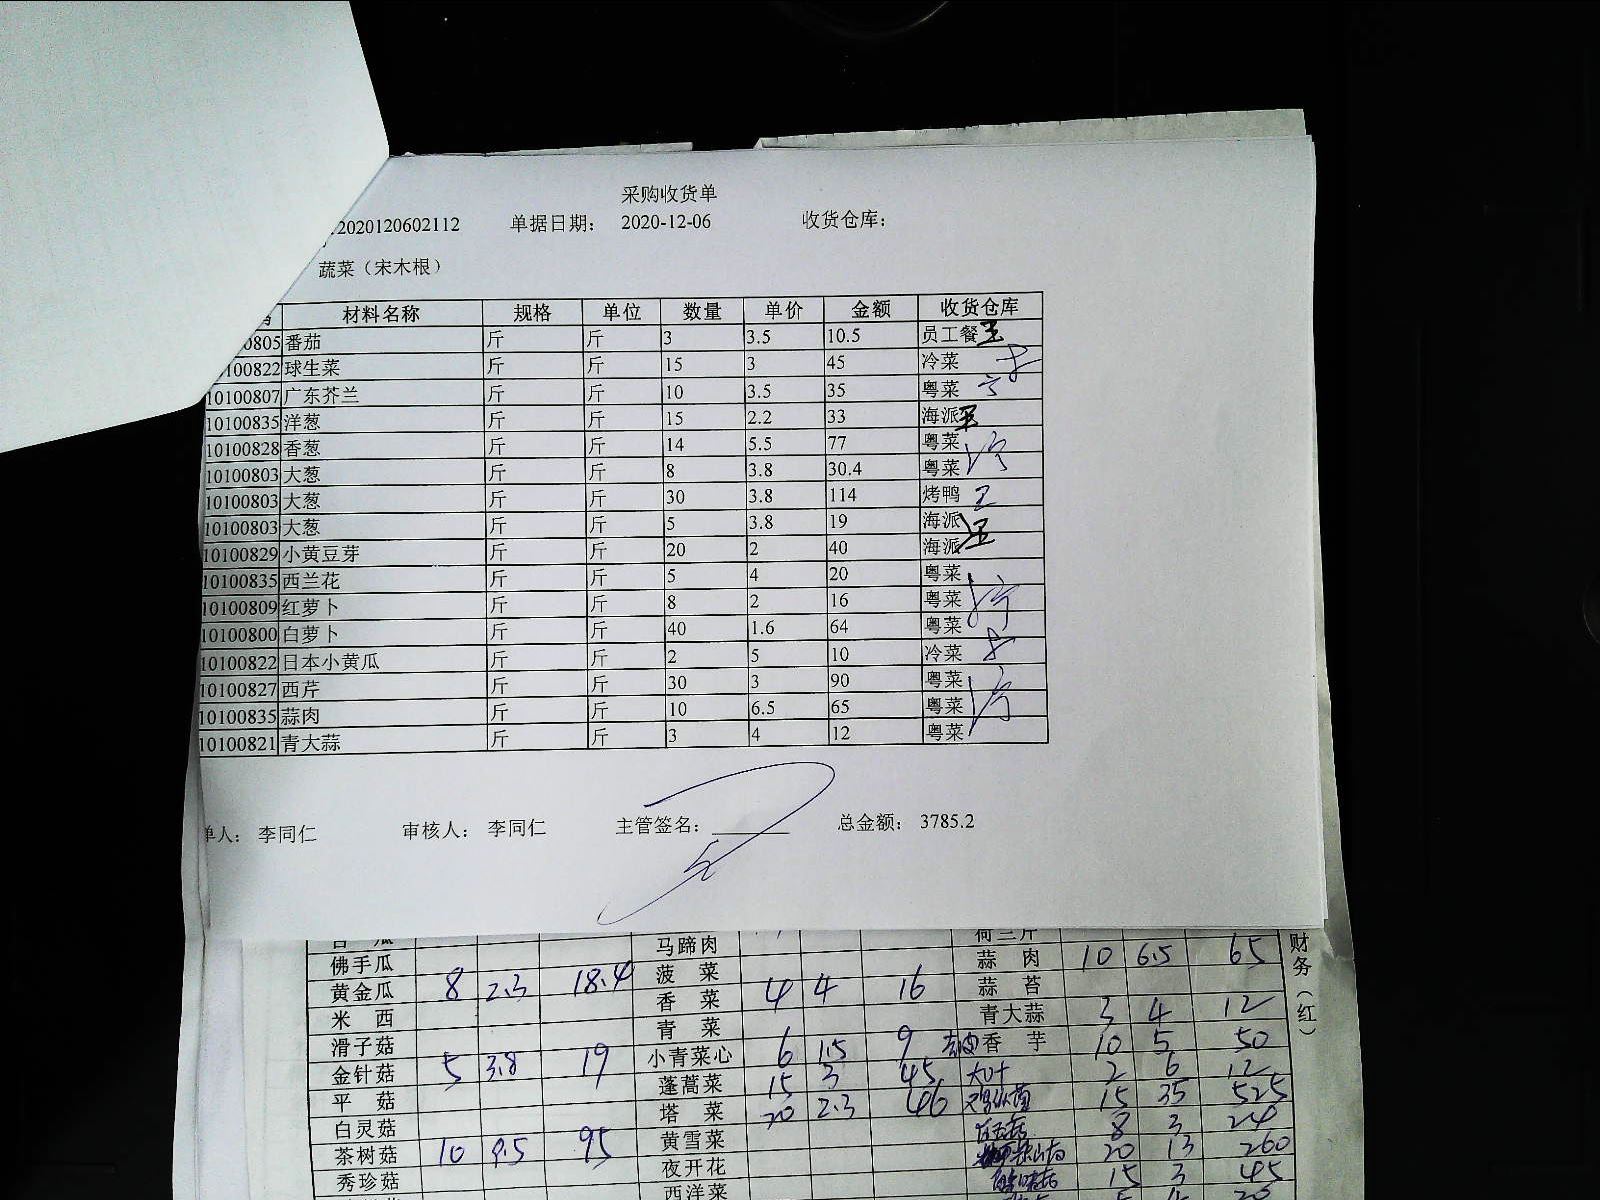 采购收货单
2020120602112 单据日期： 2020-12-06 收货仓库：
蔬菜（宋木根）
材料名称 规格 单位 数量 单价 金额 收货仓库
0805 番茄 斤 斤 3 3.5 10.5 员工餐 王
100822 球生菜 斤 斤 15 3 45 冷菜
10100807 广东芥兰 斤 斤 10 3.5 35 粤菜
10100835 洋葱 斤 斤 15 2.2 33 海派
10100828 香葱 斤 斤 14 5.5 77 粤菜
10100803 大葱 斤 斤 8 3.8 30.4 粤菜
10100803 大葱 斤 斤 30 3.8 114 烤鸭
10100803 大葱 斤 斤 5 3.8 19 海派
10100829 小黄豆芽 斤 斤 20 2 40 海派
10100835 西兰花 斤 斤 5 4 20 粤菜
10100809 红萝卜 斤 斤 8 2 16 粤菜
10100800 白萝卜 斤 斤 40 1.6 64 粤菜
10100822 日本小黄瓜 斤 斤 2 5 10 冷菜
10100827 西芹 斤 斤 30 3 90 粤菜
10100835 蒜肉 斤 斤 10 6.5 65 粤菜
10100821 青大蒜 斤 斤 3 4 12 粤菜
单人： 李同仁 审核人： 李同仁 主管签名： 总金额： 3785.2
马蹄肉 荷兰芹
佛手瓜 菠菜 蒜肉 10 6.5 65
黄金瓜 8 2.3 18.4 香菜 4 4 16 蒜苔
米西 青菜 青大蒜 3 4 12
滑子菇 小青菜心 6 1.5 9 香芋 10 5 50
金针菇 5 3.8 19 蓬蒿菜 15 3 45 大叶 2 6 12
平菇 塔菜 20 2.3 46 15 35 525
白灵菇 黄雪菜 8 3 24
茶树菇 10 9.5 95 夜开花 20 13 260
秀珍菇 西洋菜 15 3 45
财务（红）